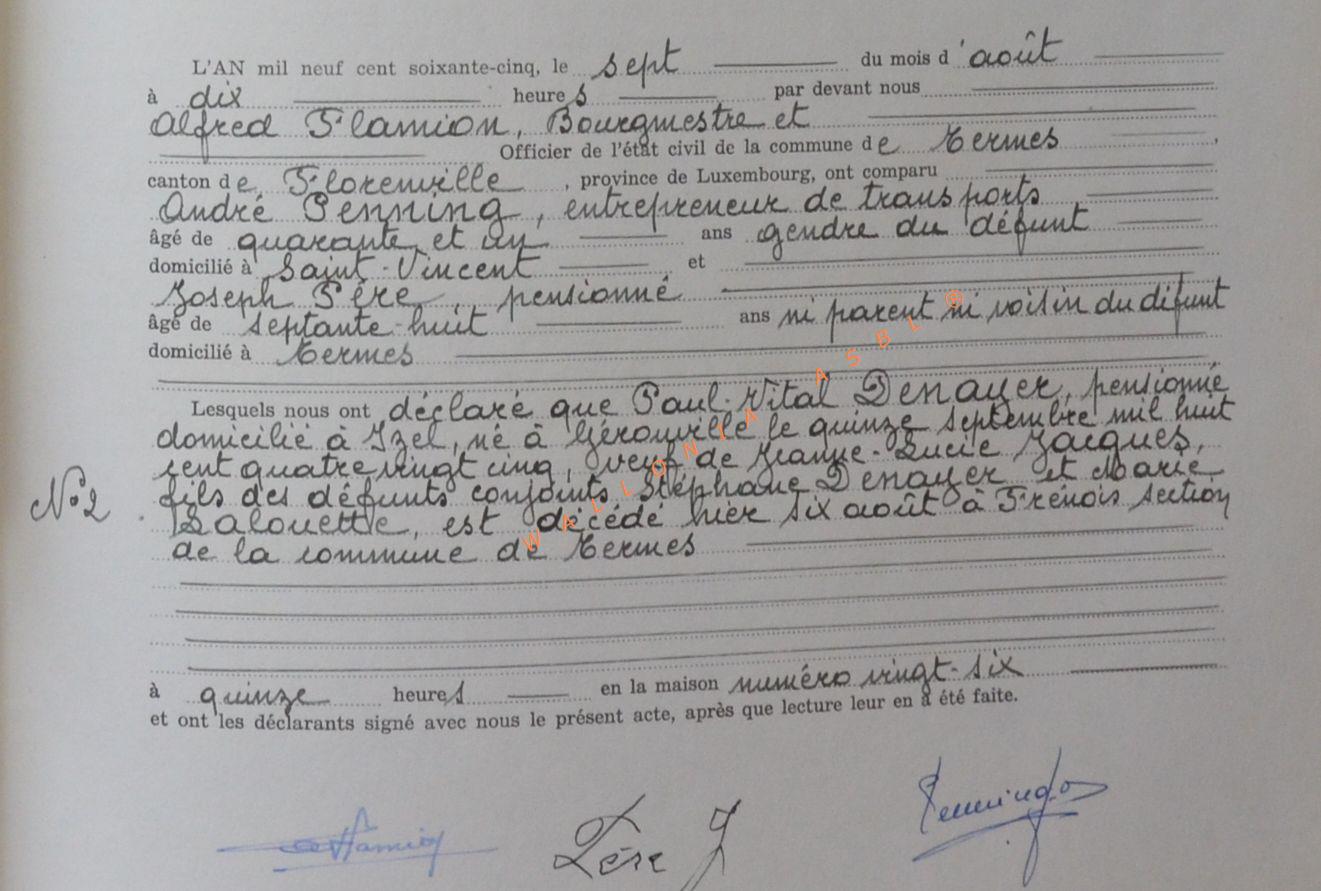 L'AN mil neuf cent soixante-cinq, le sept du mois d'août
à dix heures par devant nous
Alfred Flamion, Bourgmestre et
Officier de l'état civil de la commune de Termes,
canton de Florenville, province de Luxembourg, ont comparu
André Penning, entrepreneur de transports
âgé de quarante et un ans gendre du défunt
domicilié à Saint-Vincent, et
Joseph Père, pensionné
âgé de septante-huit ans ni parent ni voisin du défunt
domicilié à Termes
Lesquels nous ont déclaré que Paul-Vital Denayer, pensionné
domicilié à Izel, né à Gérouville le quinze septembre mil huit
cent quatre vingt cinq, veuf de Jeanne-Lucie Jacques,
fils des défunts conjoints Stéphane Denayer et Marie
Lalouette, est décédé hier six août à Frenois section
N° 2
de la commune de Termes
à quinze heures en la maison numéro vingt-six
et ont les déclarants signé avec nous le présent acte, après que lecture leur en a été faite.
Père J
Penning
WALLONIA ASBL ®